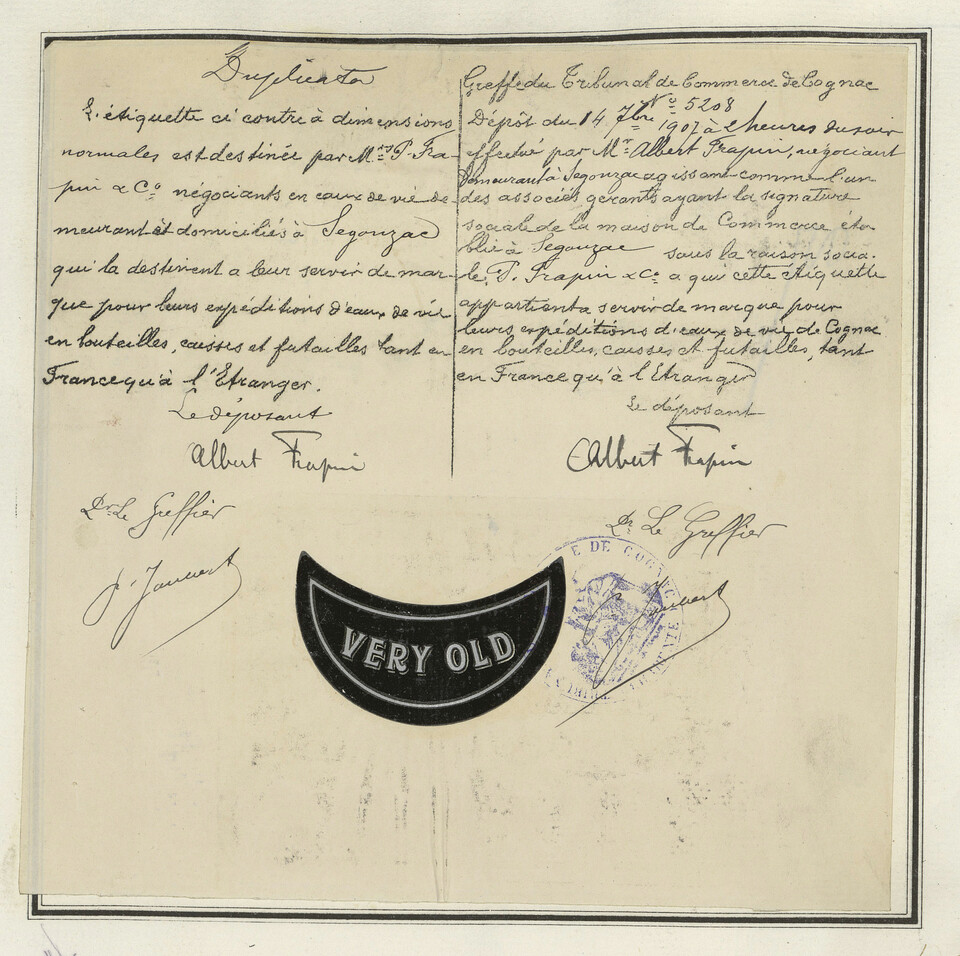 Duplicata
L'étiquette ci contre à dimensions
normales est destinée par Mrs P. Fra-
pin & Co négociants en eaux de vie de-
meurant et domiciliés à Segonzac
qui la destinent a leur servir de mar-
que pour leurs expéditions d'eaux de vie
en bouteilles, caisses et futailles tant en
France qu'à l'Etranger.
Le déposant
Albert Frapin
Dr Le Greffier
Greffe du Tribunal de Commerce de Cognac
No 5208
Dépôt du 14 7bre 1907 à 2 heures du soir
effectué par Mr Albert Frapin, négociant
demeurant à Segonzac agissant comme l'un
des associés gérants ayant la signature
sociale de la maison de Commerce éta-
blie à Segonzac sous la raison socia-
le P. Frapin & Co a qui cette étiquette
appartient a servir de marque pour
leurs expéditions d'eaux de vie de Cognac
en bouteilles, caisses et futailles, tant
en France qu'à l'Etranger
Le déposant
Albert Frapin
Dr Le Greffier
E DE COGNAC
VERY OLD